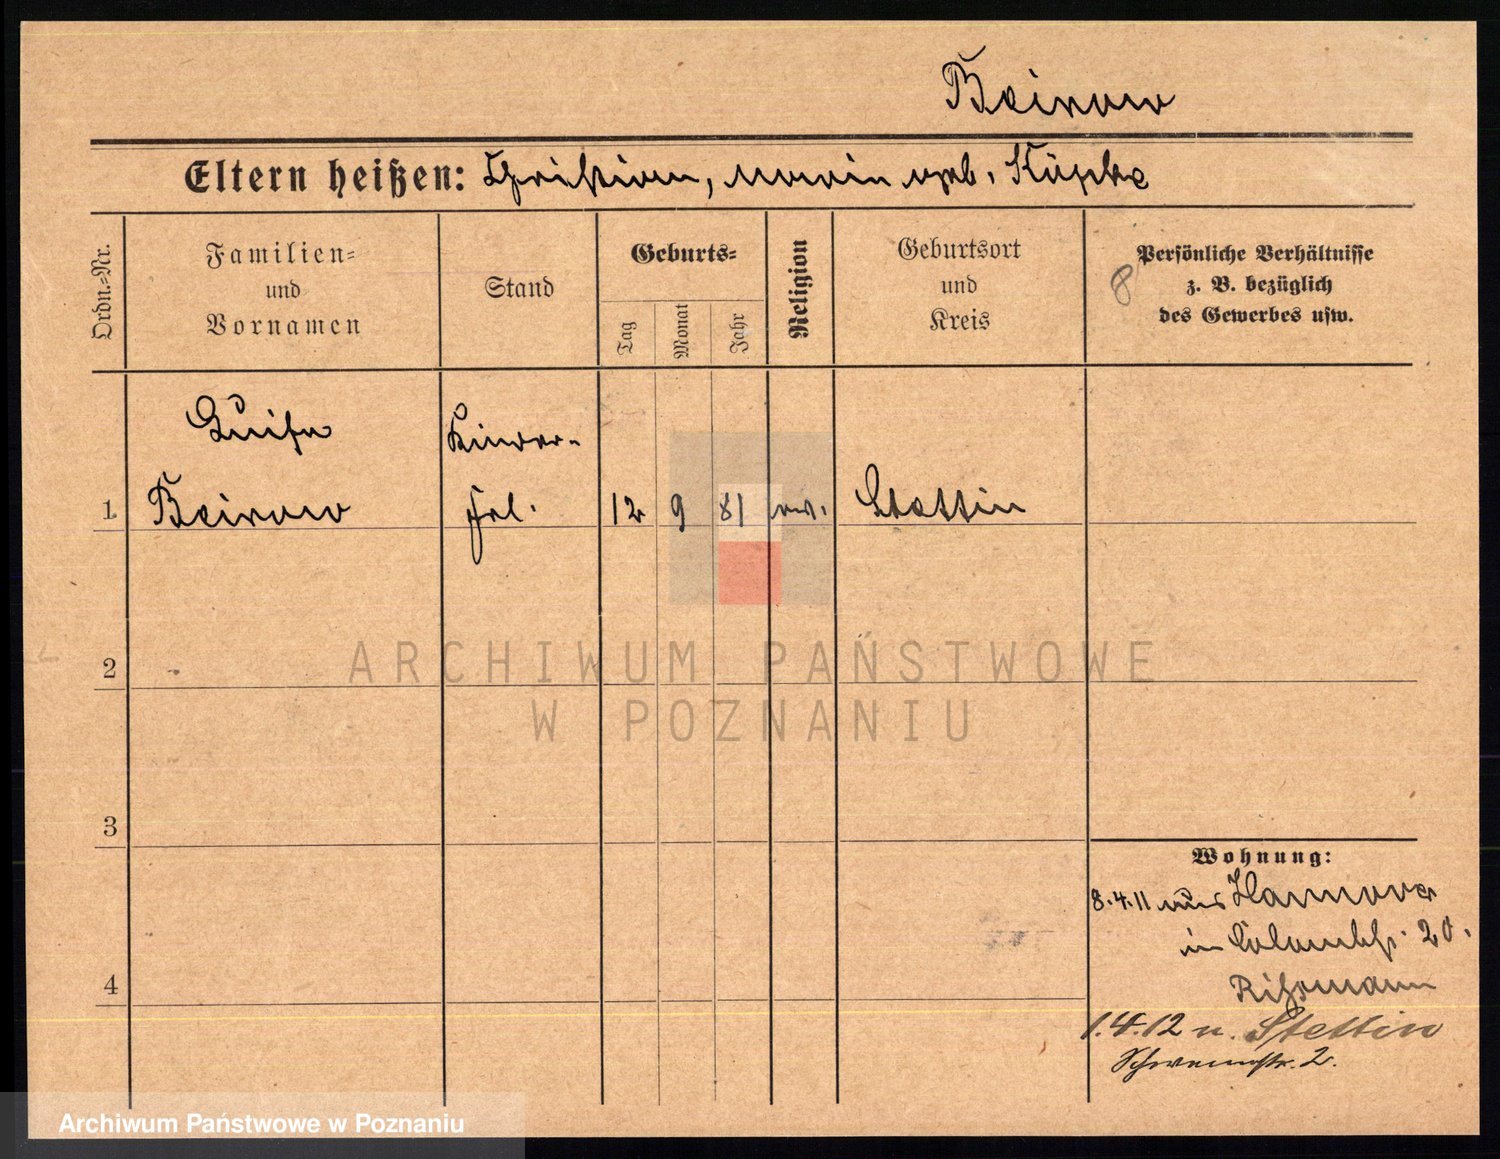 Beirow
Eltern heißen: Christian, Marie geb. Köpke
Ordn.-Nr.
Familien-
und
Vornamen
Stand
Geburts-
Tag
Monat
Jahr
Religion
Geburtsort
und
Kreis
Persönliche Verhältnisse
z. B. bezüglich
des Gewerbes usw.
8
Luise
Kinder-
1 Beirow frl. 12 9 81 ev. Stettin
2
3
4
Wohnung:
8.4.11 aus Hannover
in 20.
1.4.12 n. Stettin
2.
ARCHIWUM PAŃSTWOWE
W POZNANIU
Archiwum Państwowe w Poznaniu